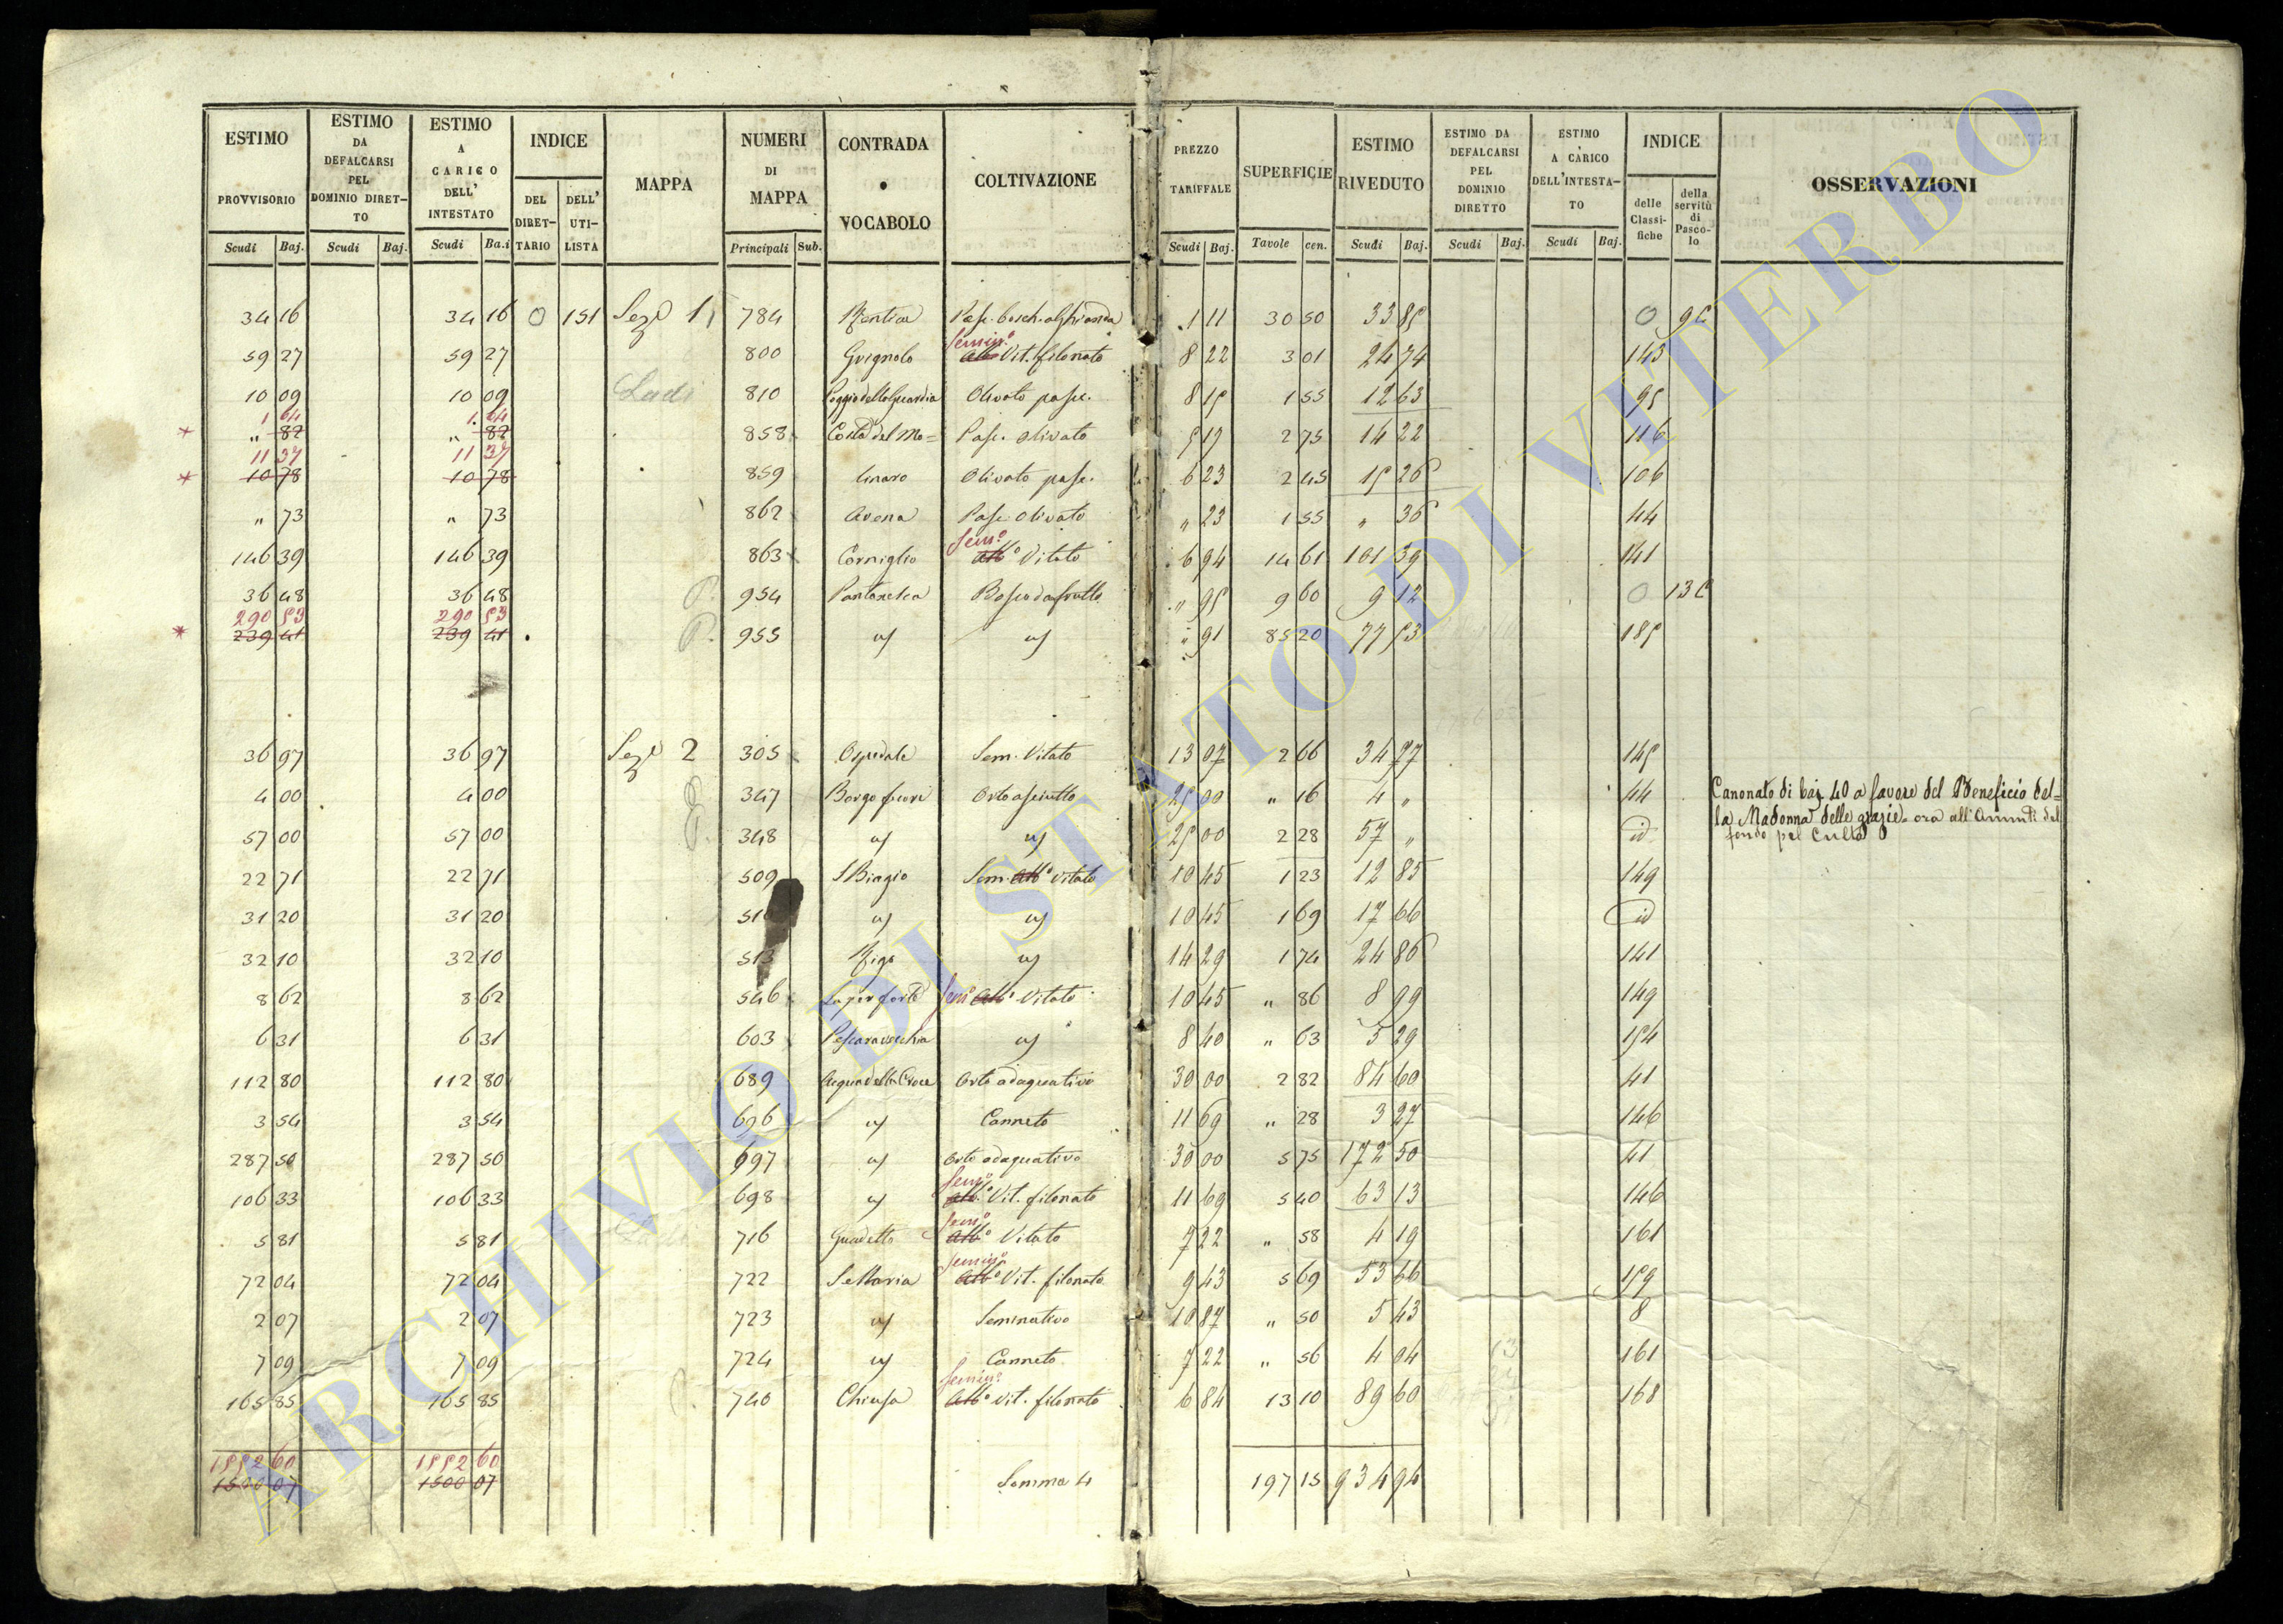 ESTIMO PROVVISORIO Scudi Baj.
ESTIMO DA DEFALCARSI PEL DOMINIO DIRETTO Scudi Baj.
ESTIMO A CARICO DELL' INTESTATO Scudi Ba.i
INDICE DEL DIRETTARIO DELL' UTILISTA
MAPPA
NUMERI DI MAPPA Principali Sub.
CONTRADA o VOCABOLO
COLTIVAZIONE
PREZZO TARIFFALE Scudi Baj.
SUPERFICIE Tavole cen.
ESTIMO RIVEDUTO Scudi Baj.
ESTIMO DA DEFALCARSI PEL DOMINIO DIRETTO Scudi Baj.
ESTIMO A CARICO DELL'INTESTATO Scudi Baj.
INDICE delle Classifiche della servitù di Pascolo
OSSERVAZIONI
34 16 34 16 0 151 Sez.e 1 784 Pasc. bosch. a Ghianda 1 11 30 50 33 85 0 9C
59 27 59 27 800 Grignolo Semin.o Alb.o Vit. filonato 8 22 3 01 24 74 143
10 09 10 09 810 Poggio della Guardia Olivato pasc. 8 15 1 55 12 63 95
* 1 04 1 04
" 82 " 82 858 Costa del Mo= Pasc. olivato 5 17 2 75 14 22 116
* 11 37 11 37
10 78 10 78 859 linaro Olivato pasc. 6 23 2 45 15 26 106
" 73 " 73 862 Avena Pasc. Olivato " 23 1 55 " 36 44
146 39 146 39 863 Corniglio Sem.o Alb.o Vitato 6 94 14 61 101 39 141
36 48 36 48 P. 954 Bosco da frutto " 95 9 60 9 12 0 13C
* 290 53 290 53
239 41 239 41 P. 955 " 91 85 20 77 53 185
36 97 36 97 Sez.e 2 305 Ospedale Sem. Vitato 13 07 2 66 34 77 145
4 00 4 00 347 Borgo fuori Orto asciutto 25 00 " 16 4 " 44 Canonato di baj 40 a favore del Beneficio del=
57 00 57 00 348 25 00 2 28 57 " id la Madonna delle grazie. ora all'Amm.ne del
fondo pel Culto
22 71 22 71 509 S Biagio Sem. Alb.o Vitato 10 45 1 23 12 85 149
31 20 31 20 10 45 1 69 17 66 id
32 10 32 10 513 14 29 1 74 24 86 141
8 62 8 62 546 Sem.o Alb.o Vitato 10 45 " 86 8 99 149
6 31 6 31 603 Pescara vecchia 8 40 " 63 5 29 154
112 80 112 80 689 Acqua della Croce Orto adaquativo 30 00 2 82 84 60 41
3 54 3 54 696 Canneto 11 69 " 28 3 27 146
287 50 287 50 697 Orto adaquativo 30 00 5 75 172 50 41
106 33 106 33 698 Semin.o Alb.o Vit. filonato 11 69 5 40 63 13 146
5 81 5 81 716 Guadetto Sem.o Alb.o Vitato 7 22 " 58 4 19 161
72 04 72 04 722 S. Maria Semin.o Alb.o Vit. filonato 9 43 5 69 53 66 159
2 07 2 07 723 Seminativo 10 87 " 50 5 43 8
7 09 7 09 724 Canneto 7 22 " 56 4 04 161
165 85 165 85 740 Chiusa Semin.o Alb.o Vit. filonato 6 84 13 10 89 60 168
1552 60 1552 60
1500 07 1500 07 Somma 4 197 15 934 94
ARCHIVIO DI STATO DI VITERBO